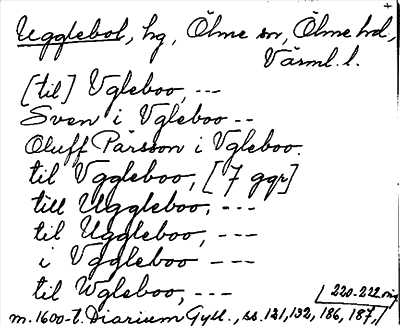 Ugglebol, hg, Ölme sn, Ölme hd,
Värml. l.
[til] Vgleboo, ---
Sven i Vgleboo --
Oluff Pärsson i Vgleboo.
til Vggleboo, [7 ggr]
till Uggleboo, ---
til Uggleboo, ---
i Vggleboo ---
til Wgleboo, ---
220-222
m. 1600-t. Diarium Gyll., ss. 131, 132, 186, 187,